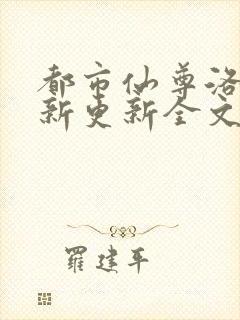 都市仙尊洛
新更新全文
羅建平